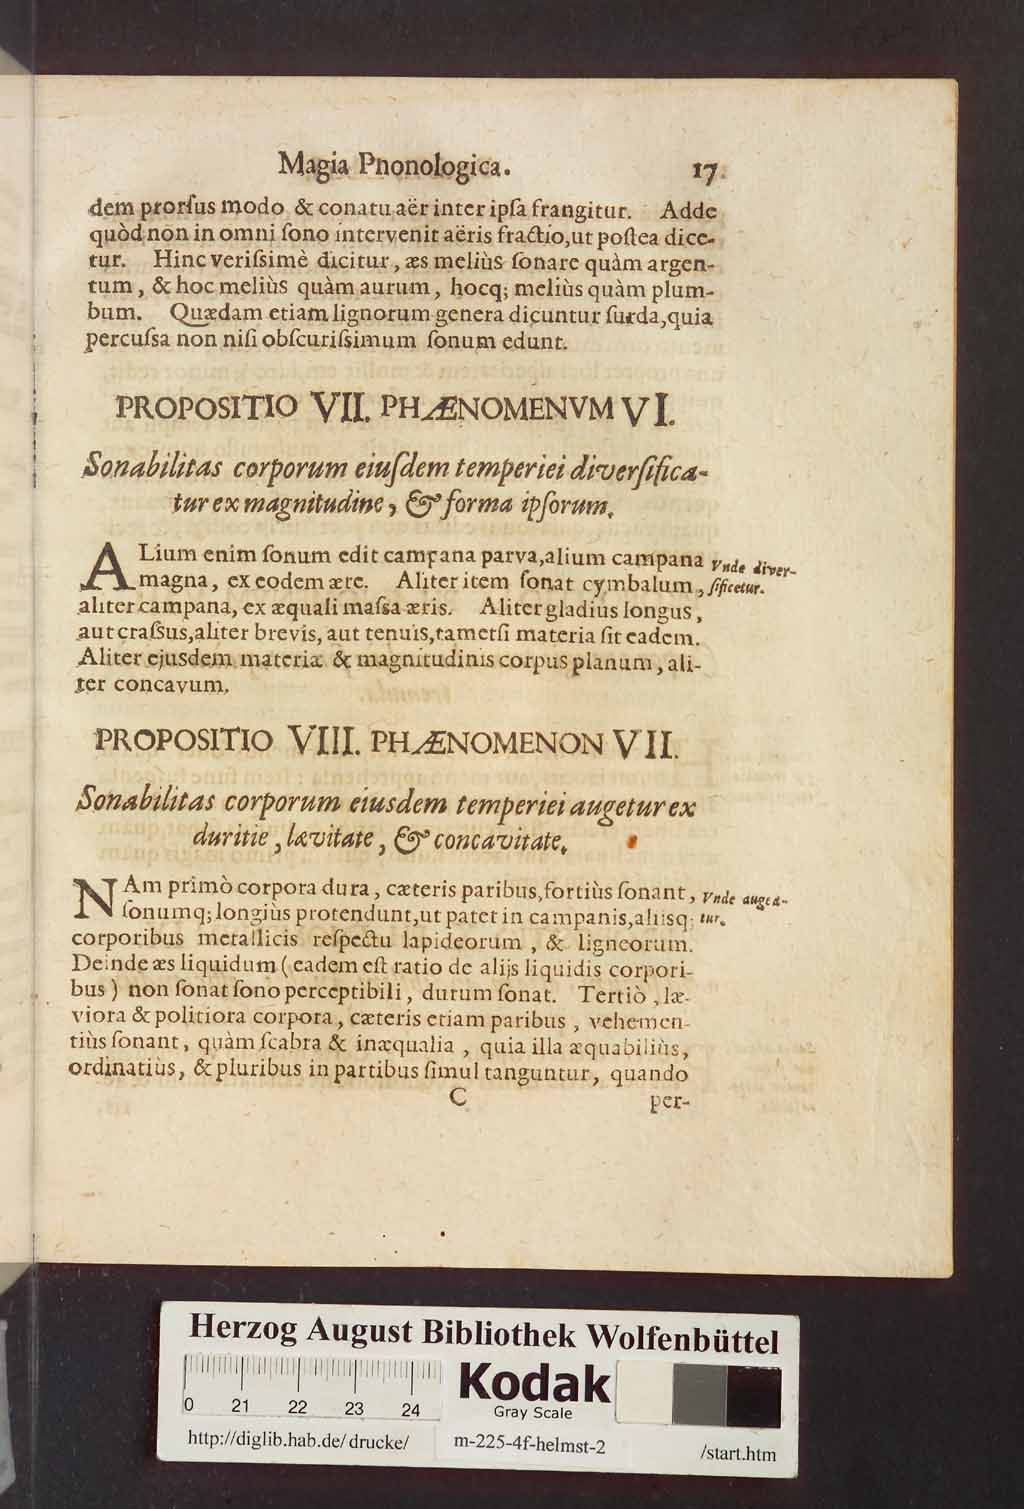 Magia Phonologica. 17
dem prorſus modo & conatu aër inter ipſa frangitur. Adde
quòd non in omni ſono intervenit aëris fractio,ut poſtea dice-
tur. Hinc veriſsimè dicitur, æs meliùs ſonare quàm argen-
tum, & hoc meliùs quàm aurum, hocq; meliùs quàm plum-
bum. Quædam etiam lignorum genera dicuntur ſurda,quia
percuſsa non niſi obſcuriſsimum ſonum edunt.
PROPOSITIO VII. PHÆNOMENVM VI.
Sonabilitas corporum eiuſdem temperiei diverſifica-
tur ex magnitudine, & forma ipſorum.
ALium enim ſonum edit campana parva,alium campana
Vnde diver-
magna, ex eodem ære. Aliter item ſonat cymbalum,
ſificetur.
aliter campana, ex æquali maſsa æris. Aliter gladius longus,
aut craſsus,aliter brevis, aut tenuis,tametſi materia ſit eadem.
Aliter ejusdem materiæ & magnitudinis corpus planum, ali-
ter concavum.
PROPOSITIO VIII. PHÆNOMENON VII.
Sonabilitas corporum eiusdem temperiei augetur ex
duritie, lævitate, & concavitate.
NAm primò corpora dura, cæteris paribus,fortiùs ſonant,
Vnde augea-
ſonumq; longiùs protendunt,ut patet in campanis,aliisq;
tur.
corporibus metallicis reſpectu lapideorum, & ligneorum.
Deinde æs liquidum ( eadem eſt ratio de alijs liquidis corpori-
bus ) non ſonat ſono perceptibili, durum ſonat. Tertiò, læ-
viora & politiora corpora, cæteris etiam paribus, vehemen-
tiùs ſonant, quàm ſcabra & inæqualia, quia illa æquabiliùs,
ordinatiùs, & pluribus in partibus ſimul tanguntur, quando
C per-
Herzog August Bibliothek Wolfenbüttel
0 21 22 23 24
Kodak
Gray Scale
http://diglib.hab.de/drucke/ m-225-4f-helmst-2 /start.htm